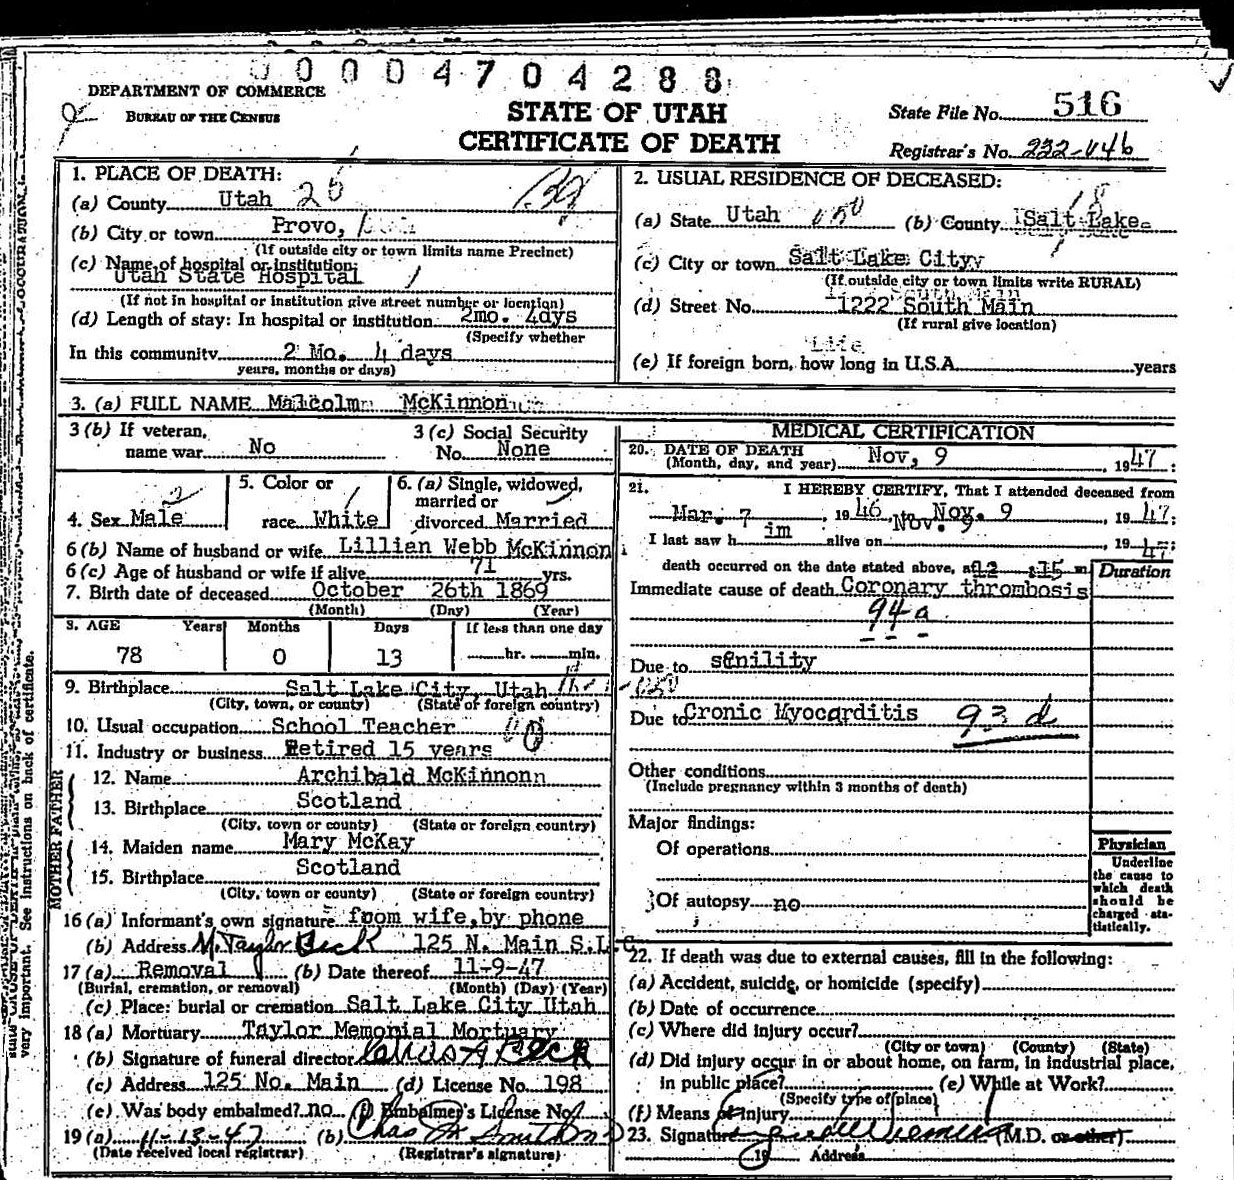 00004704288
DEPARTMENT OF COMMERCE
BUREAU OF THE CENSUS
STATE OF UTAH
CERTIFICATE OF DEATH
State File No. 516
Registrar's No. 232-046
1. PLACE OF DEATH:
(a) County Utah 25
(b) City or town Provo,
(If outside city or town limits name Precinct)
(c) Name of hospital or institution:
Utah State Hospital
(If not in hospital or institution give street number or location)
(d) Length of stay: In hospital or institution 2mo. 4days
(Specify whether
In this community 2 Mo. 4 days
years, months or days)
2. USUAL RESIDENCE OF DECEASED:
(a) State Utah 050 (b) County Salt Lake
18
(c) City or town Salt Lake City
(If outside city or town limits write RURAL)
(d) Street No. 1222 South Main
(If rural give location)
Life
(e) If foreign born, how long in U.S.A. years
3. (a) FULL NAME Malcolm McKinnon
3 (b) If veteran,
name war No
3 (c) Social Security
No. None
4. Sex Male
5. Color or
race White
6. (a) Single, widowed,
married or
divorced Married
6 (b) Name of husband or wife Lillian Webb McKinnon
6 (c) Age of husband or wife if alive 71 yrs.
7. Birth date of deceased October 26th 1869
(Month) (Day) (Year)
8. AGE Years Months Days If less than one day
78 0 13 hr. min.
9. Birthplace Salt Lake City, Utah
(City, town, or county) (State of foreign country)
10. Usual occupation School Teacher
11. Industry or business Retired 15 years
FATHER
12. Name Archibald McKinnonn
13. Birthplace Scotland
(City, town or county) (State or foreign country)
MOTHER
14. Maiden name Mary McKay
15. Birthplace Scotland
(City, town or county) (State or foreign country)
16 (a) Informant's own signature from wife,by phone
(b) Address M. Taylor Beck 125 N. Main S.L.C.
17 (a) Removal (b) Date thereof 11-9-47
(Burial, cremation, or removal) (Month) (Day) (Year)
(c) Place: burial or cremation Salt Lake City Utah
18 (a) Mortuary Taylor Memonial Mortuary
(b) Signature of funeral director Beck
(c) Address 125 No. Main (d) License No. 198
(e) Was body embalmed? no (f) Embalmer's License No.
19 (a) 11-13-47 (b) Chas
(Date received local registrar) (Registrar's signature)
MEDICAL CERTIFICATION
20. DATE OF DEATH
(Month, day, and year) Nov, 9, 1947:
21. I HEREBY CERTIFY, That I attended deceased from
Mar. 7, 1946 to Nov. 9, 1947:
I last saw him alive on Nov. 9, 1947
death occurred on the date stated above, at 12:15 m.
Duration
Immediate cause of death Coronary thrombosis
94a
Due to senility
Due to Cronic Myocarditis 93 d
Other conditions
(Include pregnancy within 3 months of death)
Major findings:
Of operations
Of autopsy no
Physician
Underline
the cause to
which death
should be
charged sta-
tistically.
22. If death was due to external causes, fill in the following:
(a) Accident, suicide, or homicide (specify)
(b) Date of occurrence
(c) Where did injury occur?
(City or town) (County) (State)
(d) Did injury occur in or about home, on farm, in industrial place,
in public place? (e) While at Work?
(Specify type of place)
(f) Means of injury
23. Signature (M.D. or other)
19 Address
very important. See instructions on back of certificate.